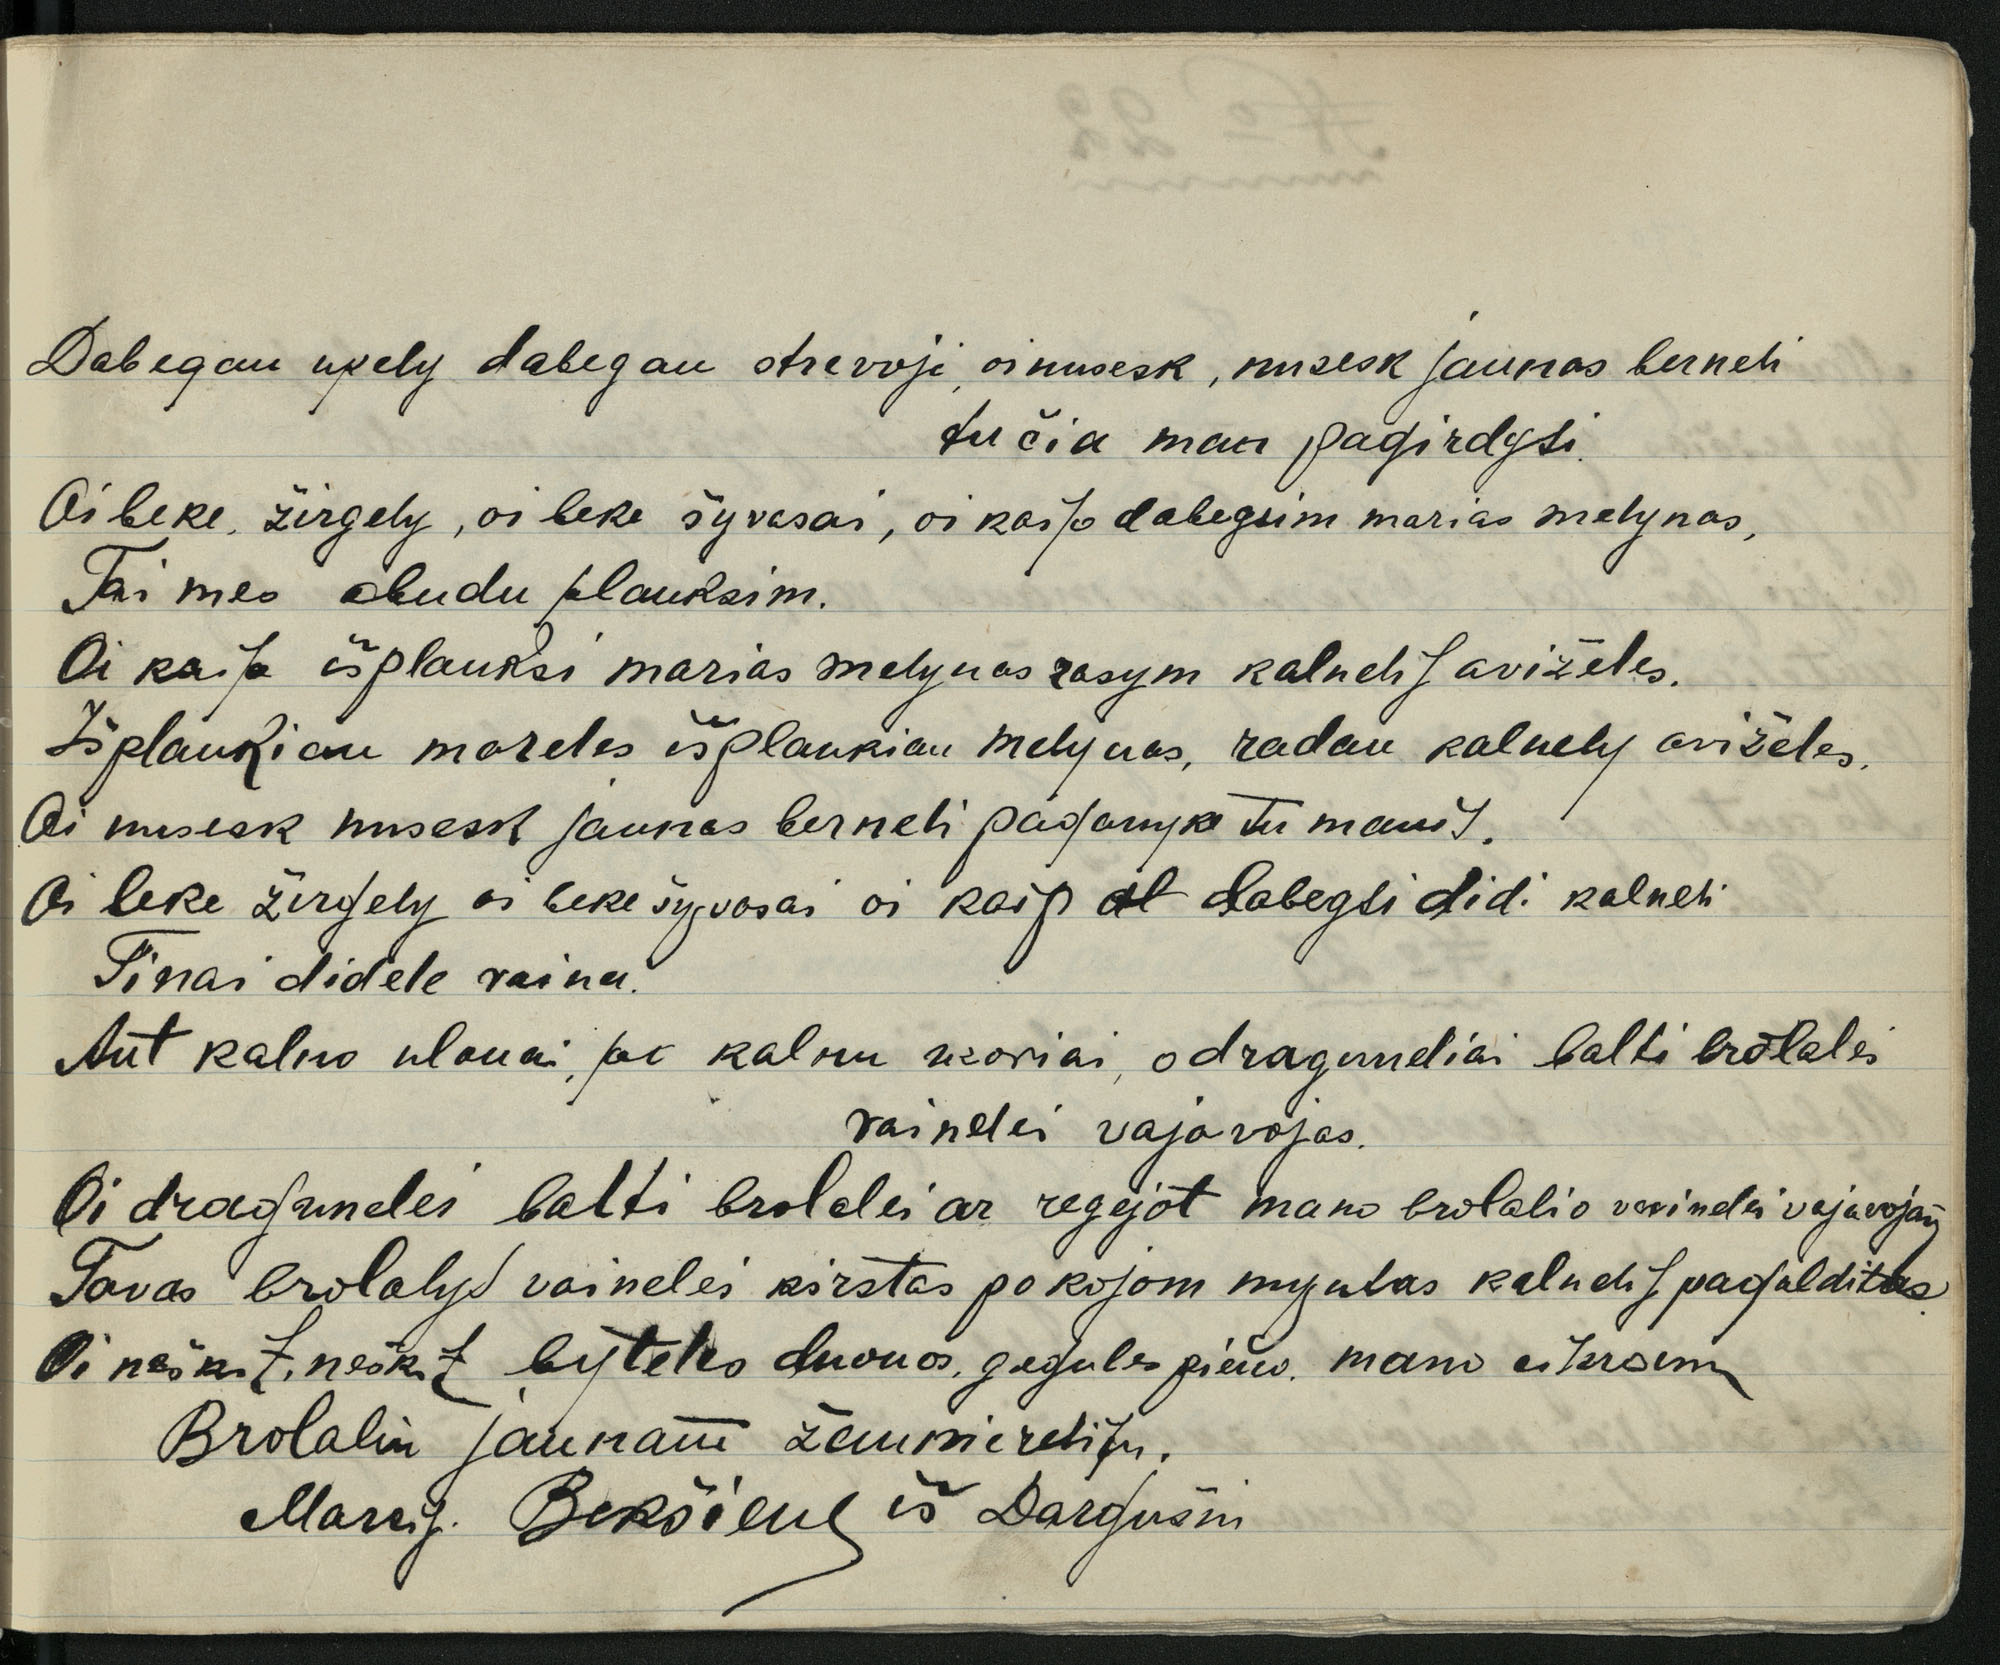 Dabegau upely dabegau strevoji, oi nusesk, nusesk jaunas berneli
tu čia man pagirdysi.
Oi beke, žirgely, oi beke šyvasai, oi kaip dabegsim marias melynas,
Tai mes abudu plauksim.
Oi kaip išplauksi marias melynas rasym kalneli avižėles.
Išplaukiau mareles išplaukiau melynas, radau kalnely avižėles.
Oi nusesk nusesk jaunas berneli paganyk tu mani.
Oi beke žirgely oi beke šyvasai oi kaip at dabegsi didi kalneli
Tinai didele vaina.
Ant kalno ulonai, pa kalnu uzoriai, o draguneliai balti brolalei
vainelei vajavojas.
Oi dragunelei balti brolelei ar regejot mano brolalio vainelei vajavojant
Tavas brolalys vainelei kirstas po kojom myntas kalneli pagulditas.
Oi neškit, neškit bytelės duonos, gegulės pieno, mano
Brolaliu jaunam žaunierėliu.
Bekšienė iš Dargušiu